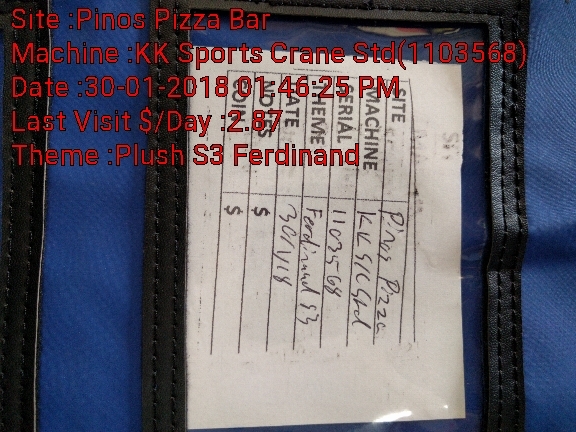 Site :Pinos Pizza Bar
Machine :KK Sports Crane Std(1103568)
Date :30-01-2018 01:46:25 PM
Last Visit $/Day :2.87
Theme :Plush S3 Ferdinand
SITE Pinos Pizza
MACHINE KK S/C Std
SERIAL 1103568
THEME Ferdinand S3
DATE 30/1/18
NOTES $
COIN $